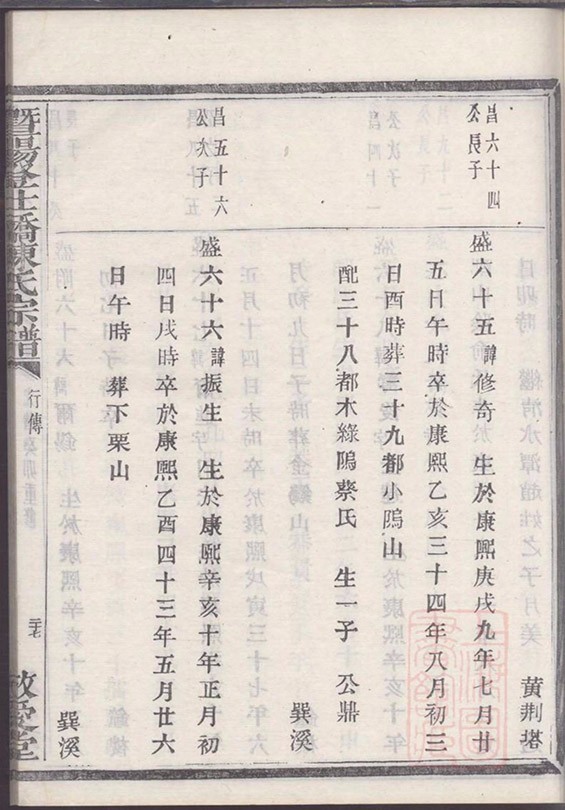 昌六十四
公長子
盛六十五諱修奇 生於康熙庚戌九年七月廿
五日午時卒於康熙乙亥三十四年八月初三
日酉時葬三十九都小塢山
配三十八都木綠塢蔡氏 生一子 公鼎
黃荆塔
巽溪
昌五十六
公次子
盛六十六諱振生 生於康熙辛亥十年正月初
四日戌時卒於康熙乙酉四十三年五月廿六
日午時 葬下栗山
巽溪
暨陽登仕橋陳氏宗譜
行傳
癸卯重修
敬愛堂